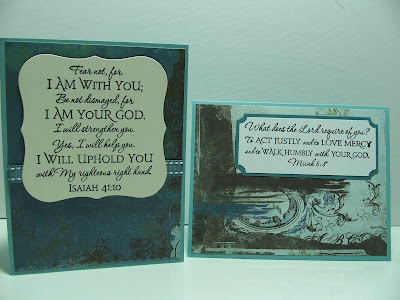 Fear not, for
I AM WITH YOU;
Be not dismayed, for
I AM YOUR GOD.
I will strengthen you.
Yes, I will help you.
I WILL UPHOLD YOU
with My righteous right hand.
ISAIAH 41:10
What does the Lord require of you?
TO ACT JUSTLY and to LOVE MERCY
and to WALK HUMBLY with YOUR GOD.
Micah 6:8